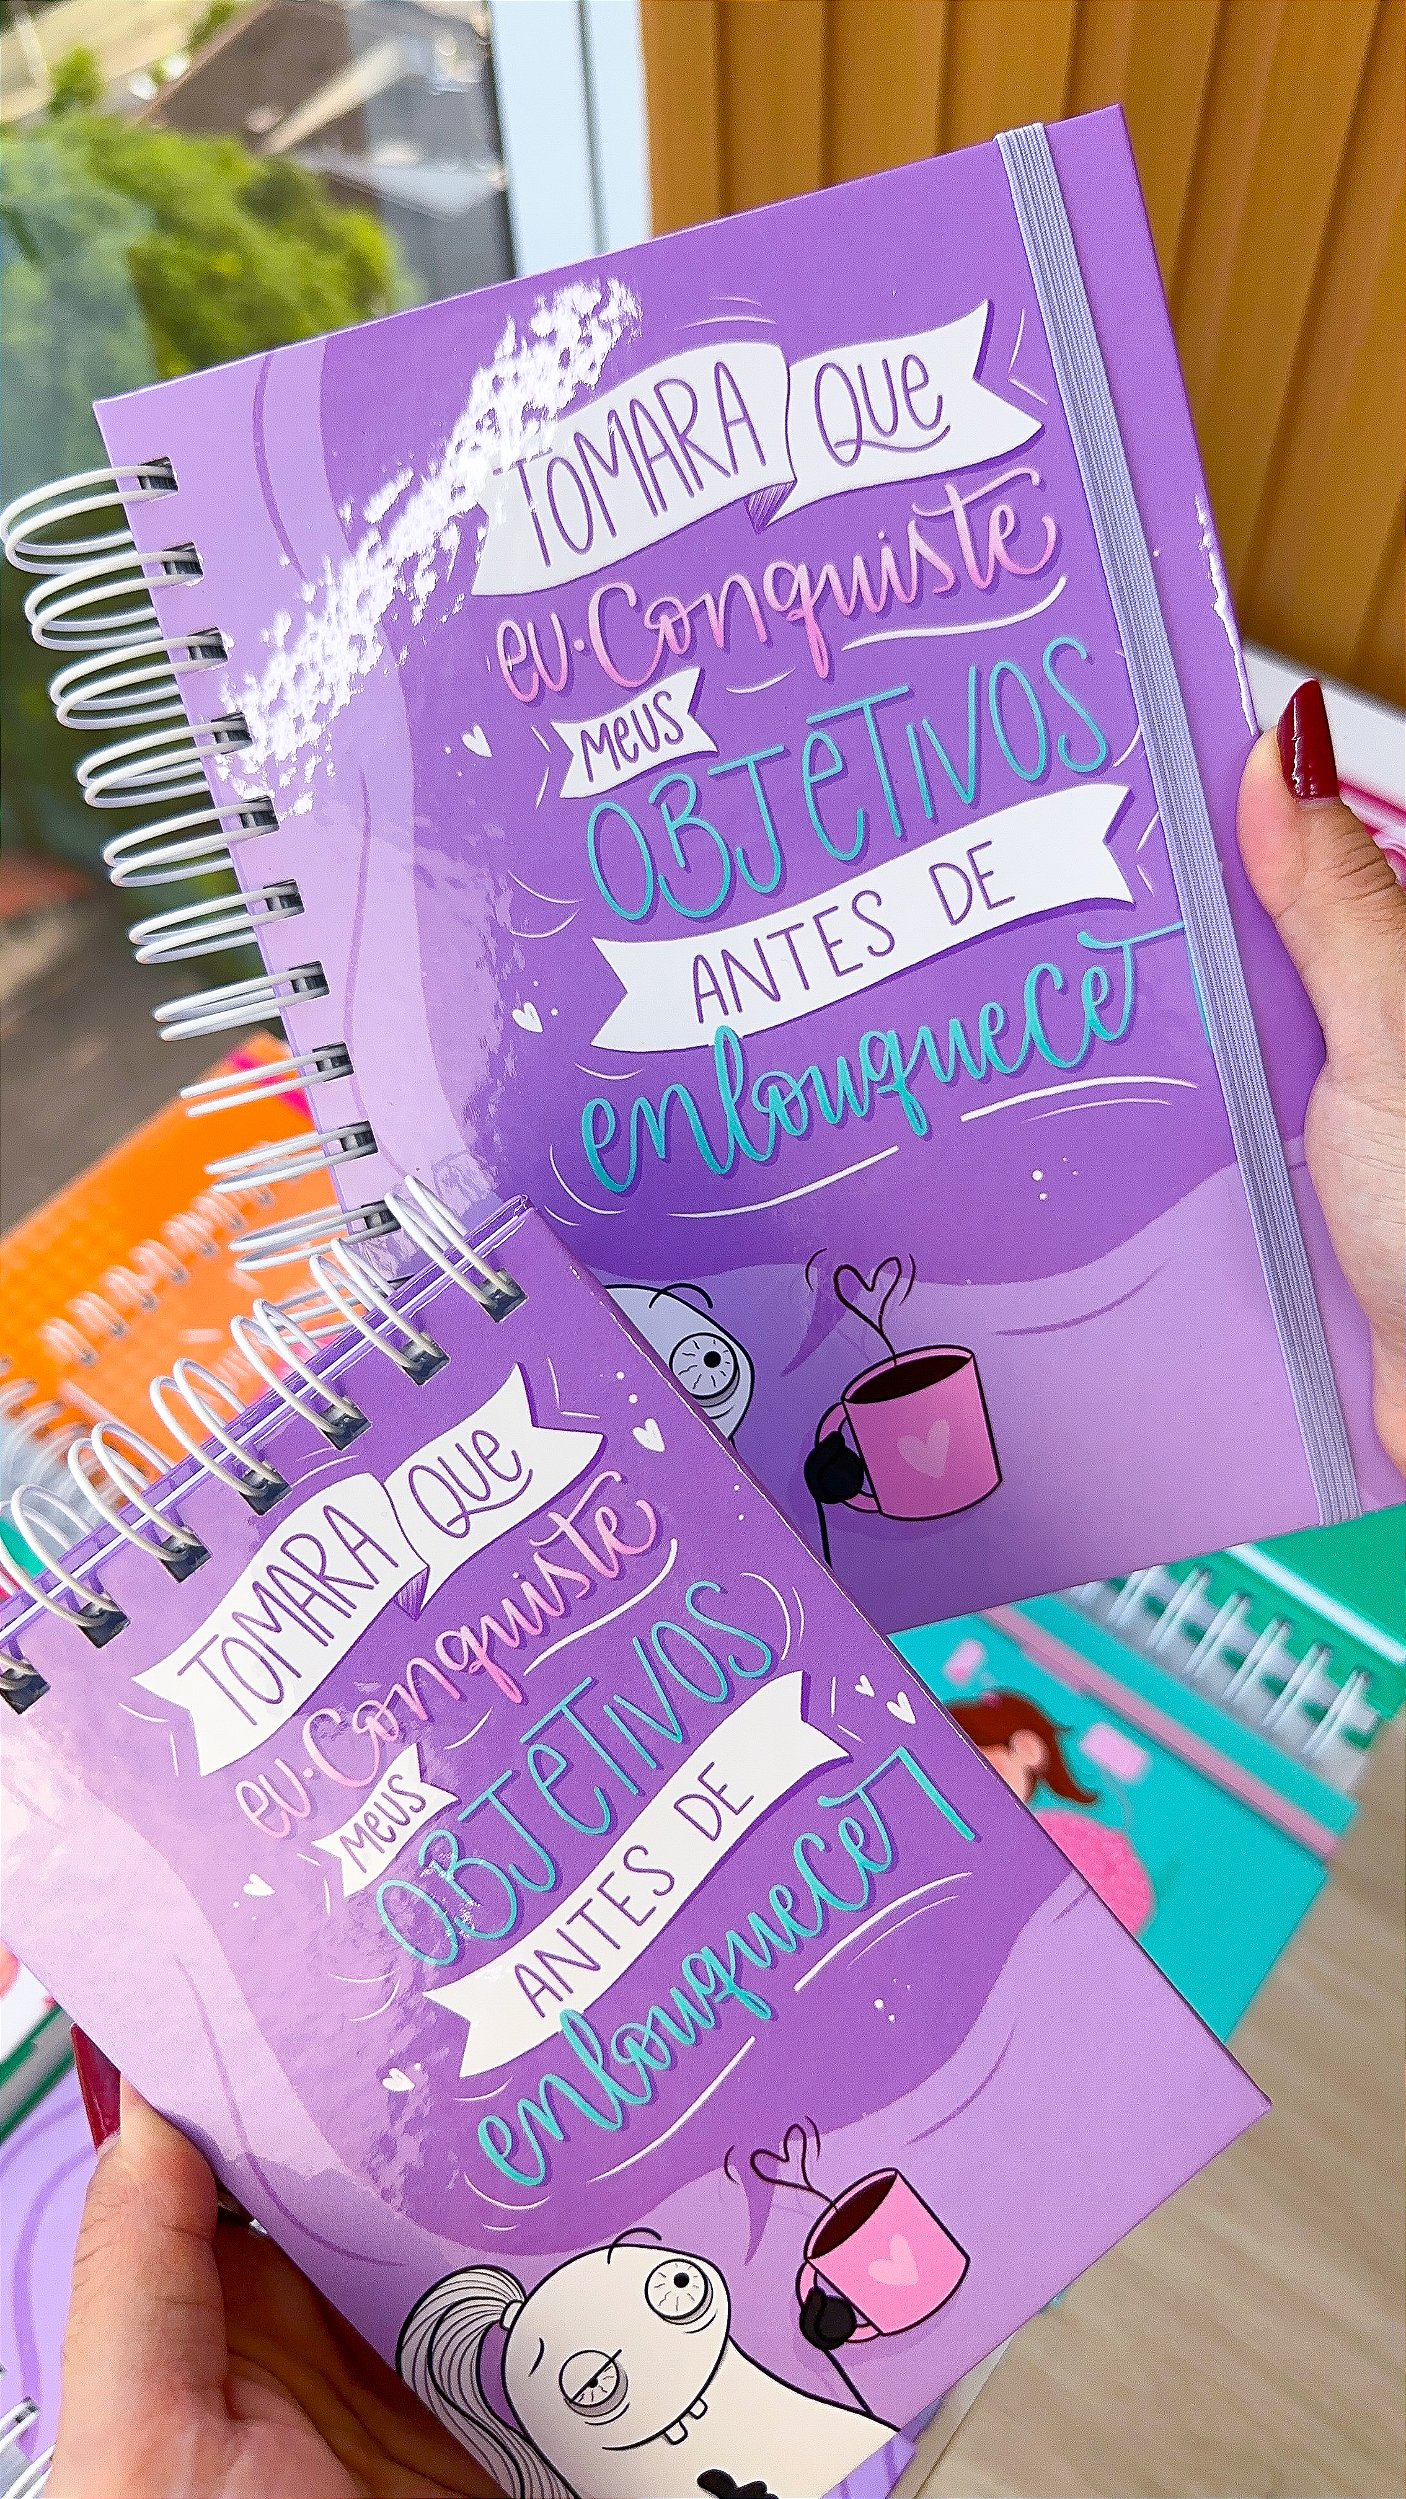 TOMARA QUE
eu Conquiste
MEUS
OBJETIVOS
ANTES DE
enlouquecer
TOMARA QUE
eu Conquiste
MEUS
OBJETIVOS
ANTES DE
enlouquecer